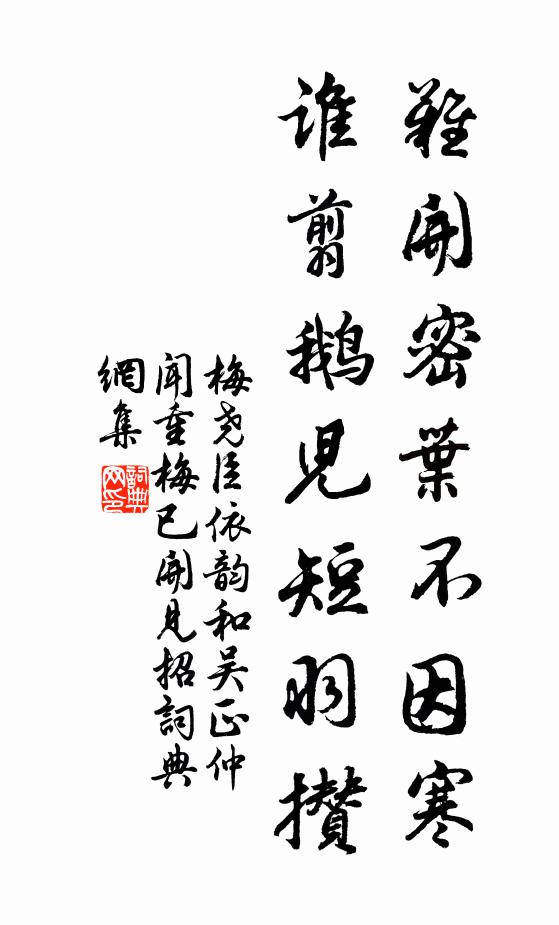 難開密葉不因寒
誰翦鵝児短羽攢
梅堯臣依韵和吴正仲
聞重梅已開見招詞典
網集
詞典
网印